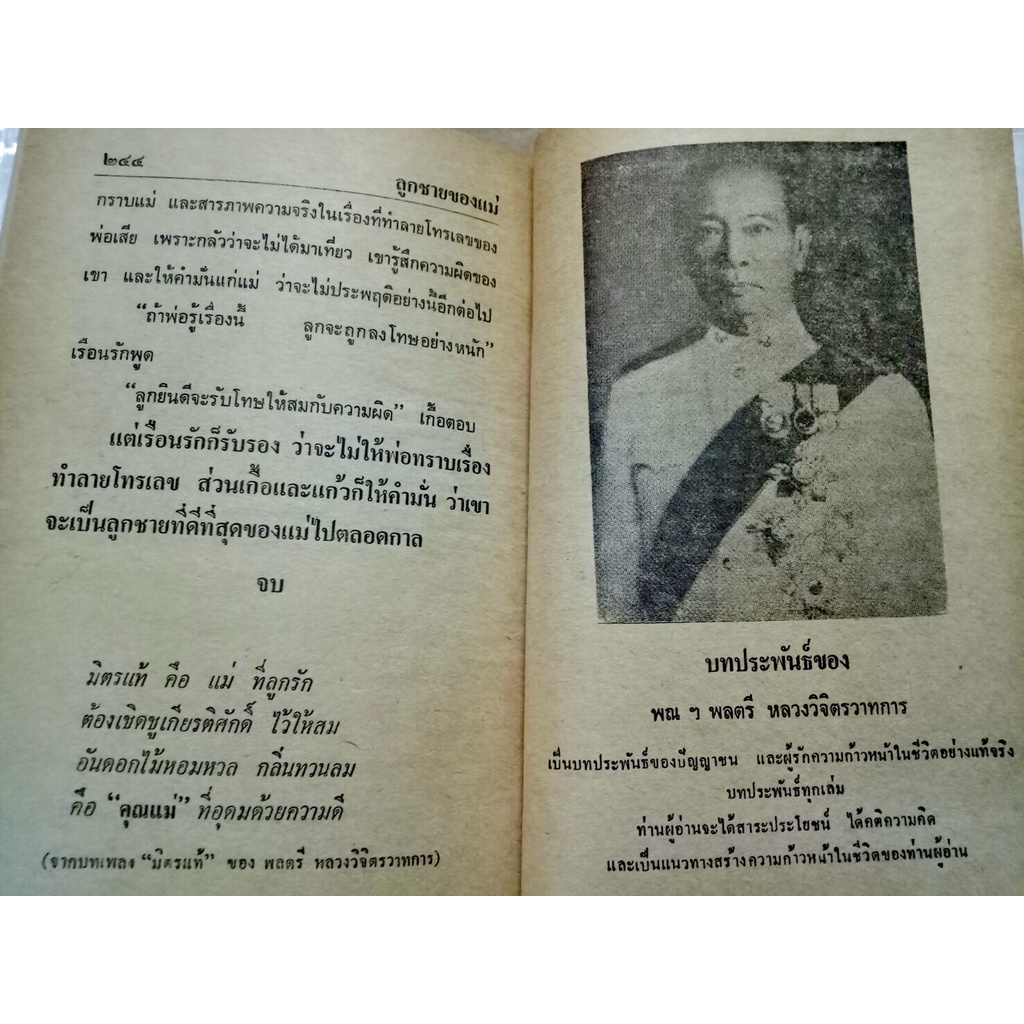 ๒๔๔
ลูกชายของแม่
กราบแม่ และสารภาพความจริงในเรื่องที่ทำลายโทรเลขของ
พ่อเสีย เพราะกลัวว่าจะไม่ได้มาเที่ยว เขารู้สึกความผิดของ
เขา และให้คำมั่นแก่แม่ ว่าจะไม่ประพฤติอย่างนี้อีกต่อไป
“ถ้าพ่อรู้เรื่องนี้ ลูกจะถูกลงโทษอย่างหนัก”
เรือนรักพูด
“ลูกยินดีจะรับโทษให้สมกับความผิด” เกื้อตอบ
แต่เรือนรักก็รับรอง ว่าจะไม่ให้พ่อทราบเรื่อง
ทำลายโทรเลข ส่วนเกื้อและแก้วก็ให้คำมั่น ว่าเขา
จะเป็นลูกชายที่ดีที่สุดของแม่ไปตลอดกาล
จบ
มิตรแท้ คือ แม่ ที่ลูกรัก
ต้องเชิดชูเกียรติศักดิ์ ไว้ให้สม
อันดอกไม้หอมหวล กลิ่นทวนลม
คือ “คุณแม่” ที่อุดมด้วยความดี
(จากบทเพลง “มิตรแท้” ของ พลตรี หลวงวิจิตรวาทการ)
บทประพันธ์ของ
พณ ฯ พลตรี หลวงวิจิตรวาทการ
เป็นบทประพันธ์ของปัญญาชน และผู้รักความก้าวหน้าในชีวิตอย่างแท้จริง
บทประพันธ์ทุกเล่ม
ท่านผู้อ่านจะได้สาระประโยชน์ ได้คติความคิด
และเป็นแนวทางสร้างความก้าวหน้าในชีวิตของท่านผู้อ่าน